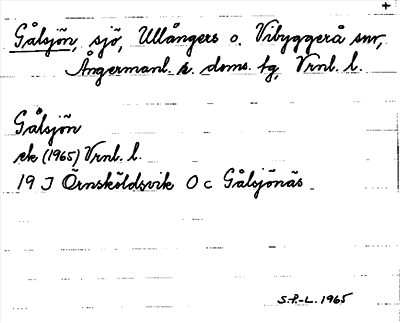 +
Gålsjön, sjö, Ullångers o. Vibyggerå snr,
Ångermanl. s. doms. tg, Vrnl. l.
Gålsjön
ek (1965) Vrnl. l.
19 J Örnsköldsvik 0 c Gålsjönäs
S.P.-L. 1965